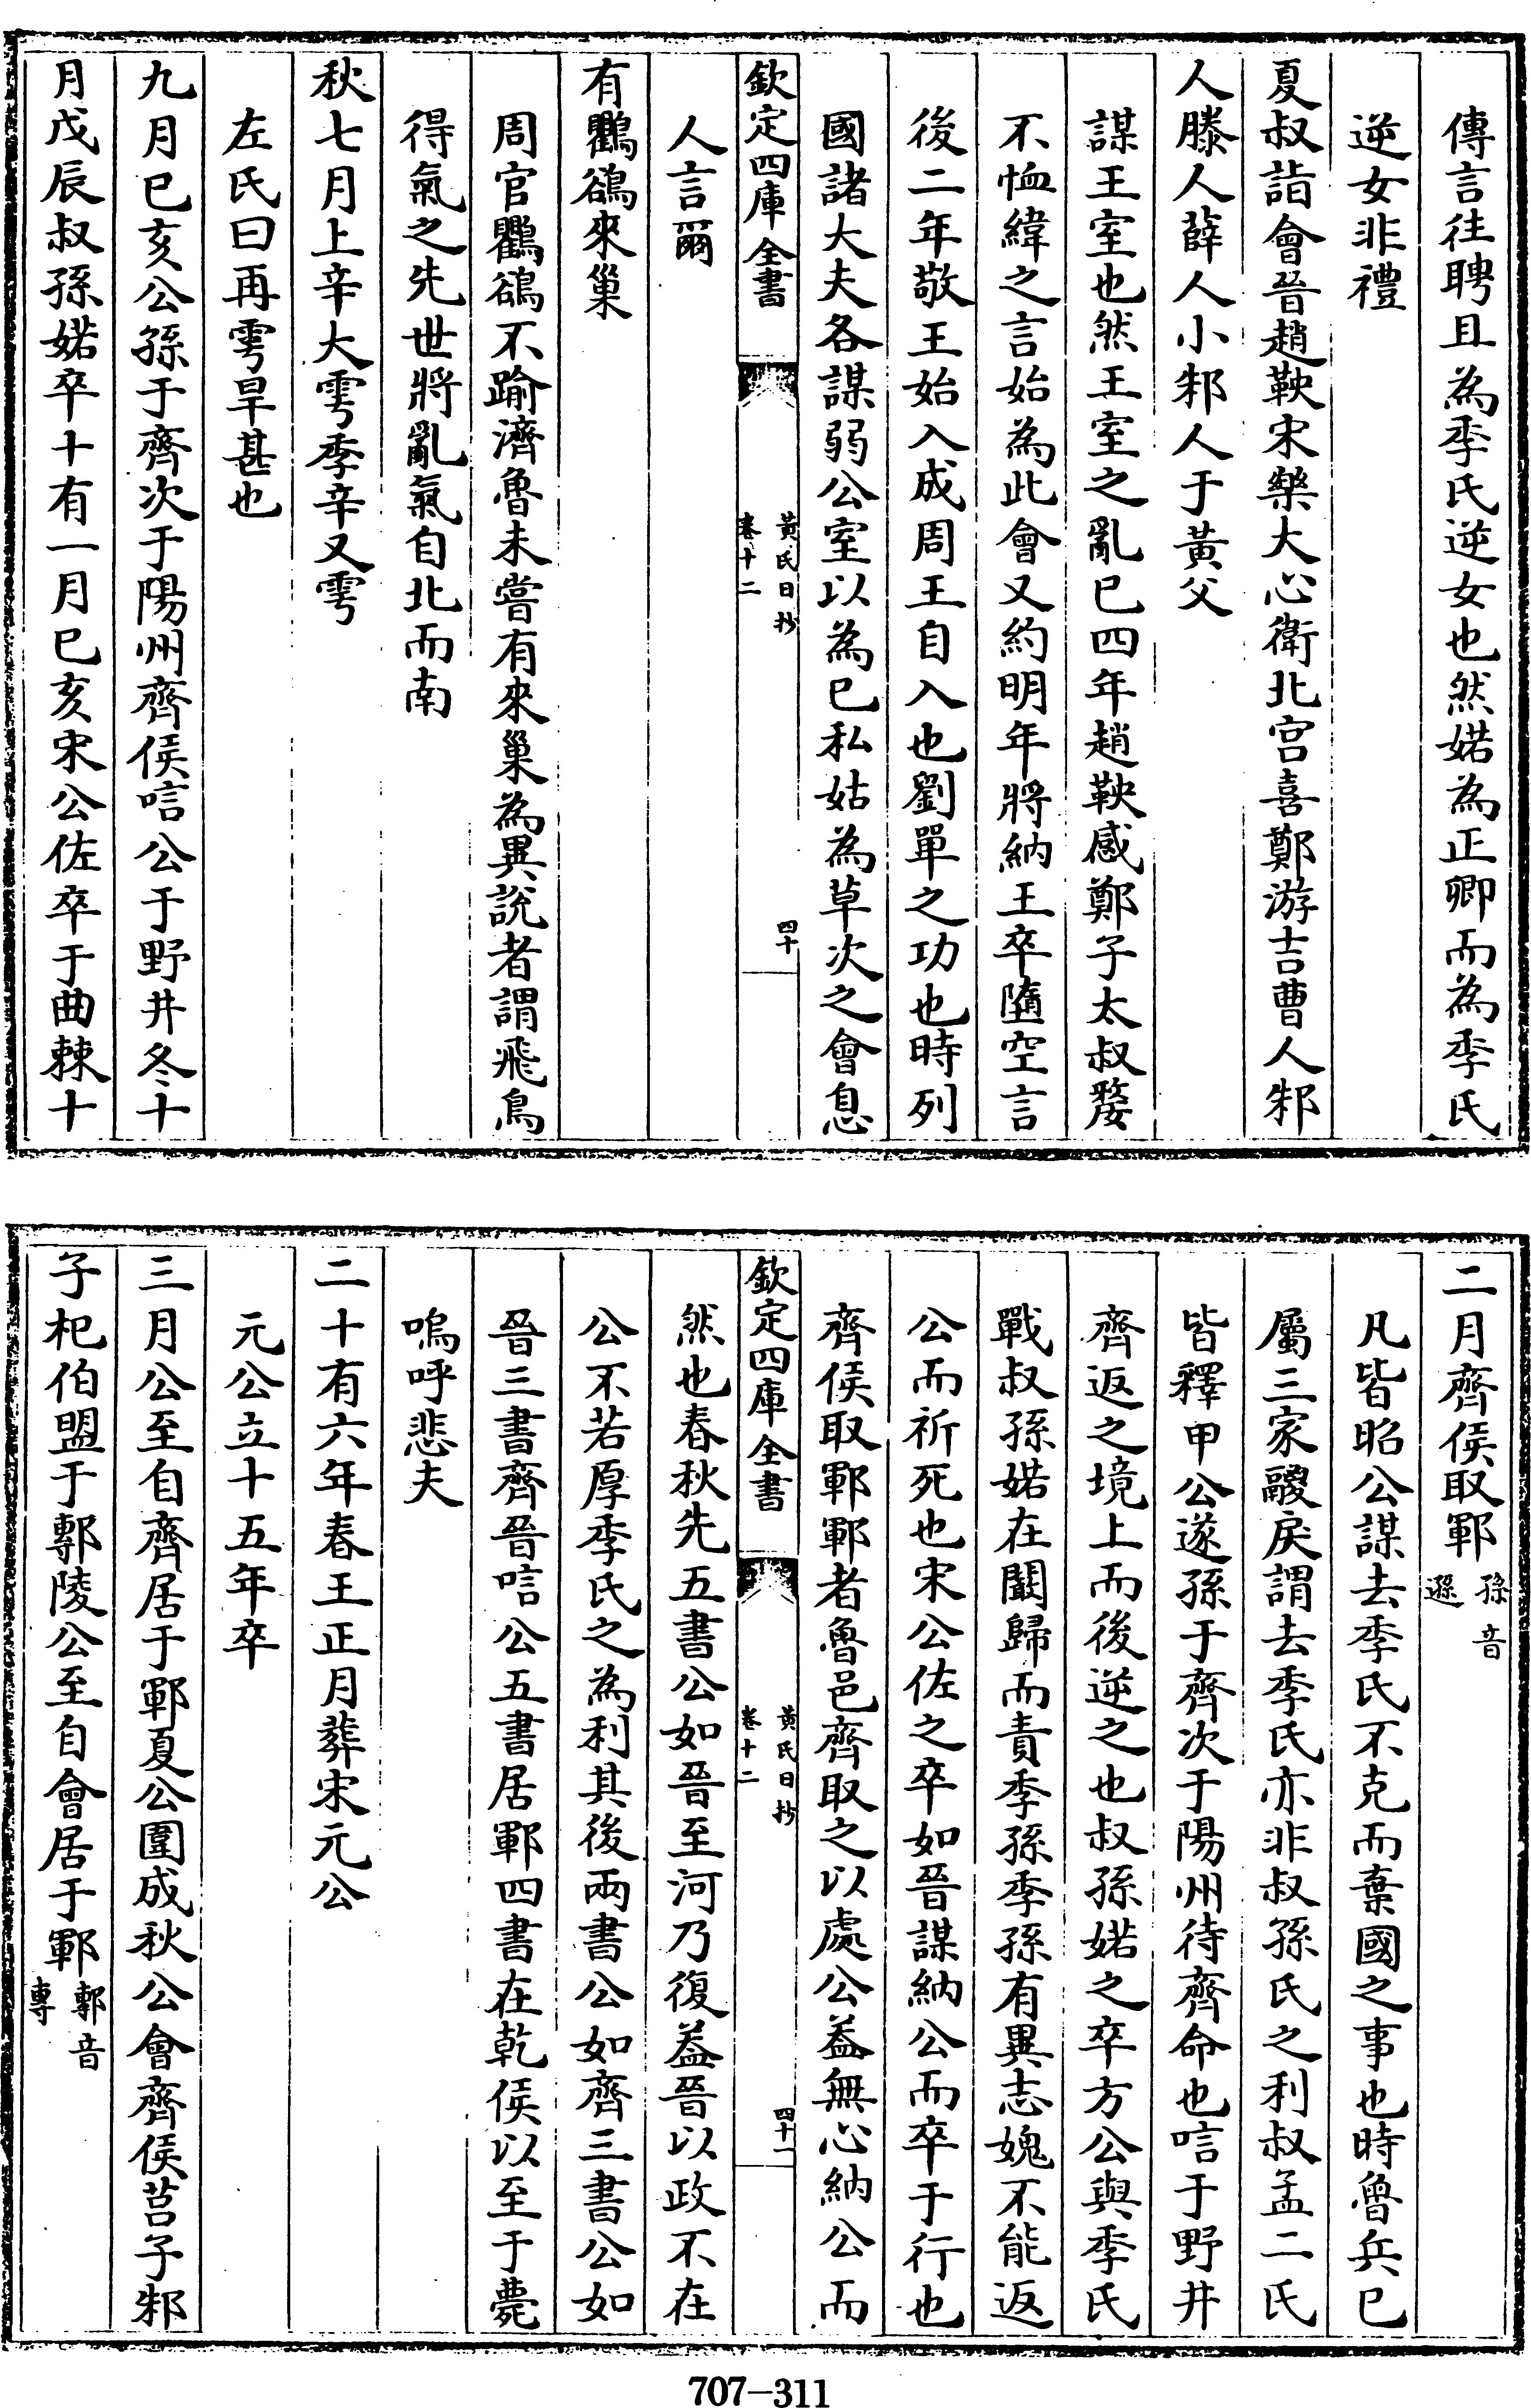 傳言往聘且為季氏逆女也然婼為正卿而為季氏
逆女非禮
夏叔詣會晉趙鞅宋樂大心衛北宫喜鄭游吉曹人邾
人滕人薛人小邾人于黃父
謀王室也然王室之亂已四年趙鞅感鄭子太叔嫠
不恤緯之言始為此會又約明年將納王卒墮空言
後二年敬王始入成周王自入也劉單之功也時列
國諸大夫各謀弱公室以為已私姑為草次之會息
欽定四庫全書
黃氏日抄
卷十二
四十
人言爾
有鸜鵒來巢
周官鸜鵒不踰濟魯未嘗有來巢為異說者謂飛鳥
得氣之先世將亂氣自北而南
秋七月上辛大雩季辛又雩
左氏曰再雩旱甚也
九月已亥公孫于齊次于陽州齊侯唁公于野井冬十
月戊辰叔孫婼卒十有一月已亥宋公佐卒于曲棘十
二月齊侯取鄆孫音遜
凡皆昭公謀去季氏不克而棄國之事也時魯兵已
屬三家鬷戾謂去季氏亦非叔孫氏之利叔孟二氏
皆釋甲公遂孫于齊次于陽州待齊命也唁于野井
齊返之境上而後逆之也叔孫婼之卒方公與季氏
戰叔孫婼在闞歸而責季孫季孫有異志媿不能返
公而祈死也宋公佐之卒如晉謀納公而卒于行也
齊侯取鄆鄆者魯邑齊取之以處公葢無心納公而
欽定四庫全書
黃氏日抄
卷十二
四十一
然也春秋先五書公如晉至河乃復葢晉以政不在
公不若厚季氏之為利其後兩書公如齊三書公如
晉三書齊晉唁公五書居鄆四書在乾侯以至于薨
嗚呼悲夫
二十有六年春王正月葬宋元公
元公立十五年卒
三月公至自齊居于鄆夏公圍成秋公會齊侯莒子邾
子杞伯盟于鄟陵公至自會居于鄆鄟音專
707-311